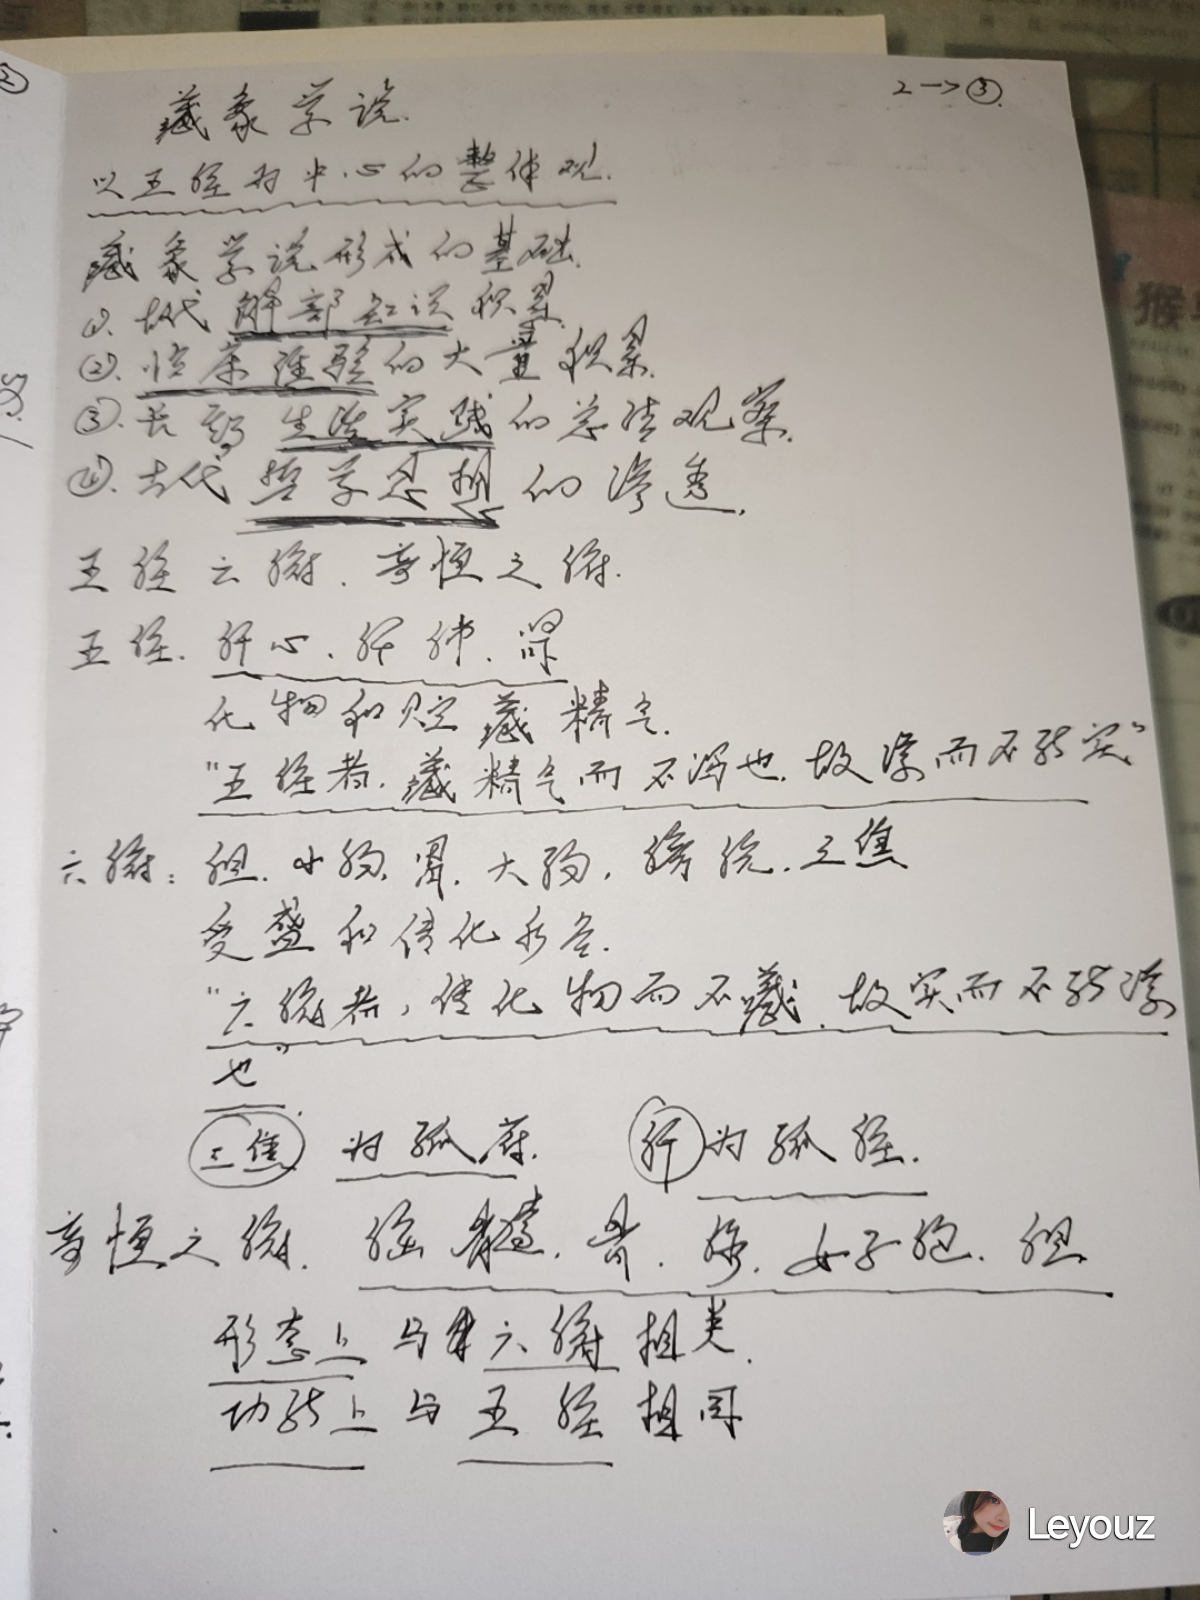 2→③
藏象学说.
以五脏为中心的整体观.
藏象学说形成的基础.
①.古代解部知识积累
②.临床经验的大量积累.
③.长期生活实践的总结观察.
④.古代哲学思想的渗透.
五脏六腑.奇恒之腑.
五脏.肝心.脾肺.肾
化物和贮藏精气.
"五脏者.藏精气而不泻也.故满而不能实"
六腑:胆.小肠.胃.大肠.膀胱.三焦
受盛和传化水谷.
"六腑者,传化物而不藏.故实而不能满
也".
三焦为孤府. 肝为孤脏.
奇恒之腑.脑髓.骨.脉.女子胞.胆
形态上与六腑相类.
功能上与五脏相同
猴
Leyouz